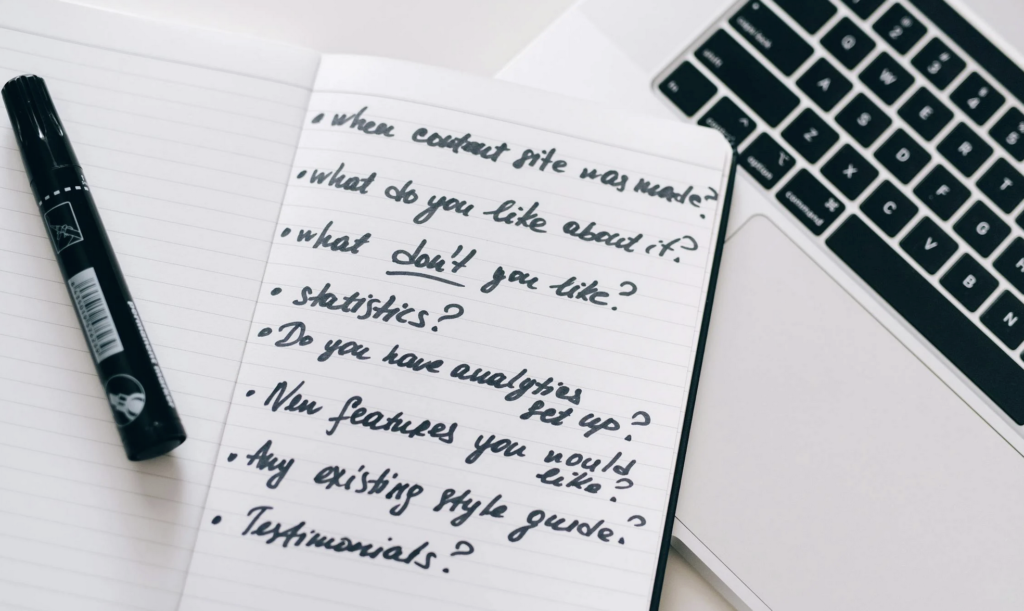 • when content site was made?
• what do you like about it?
• what don't you like?
• statistics?
• Do you have analytics
set up?
• New features you would
like?
• Any existing style guide?
• Testimonials?
2 3 4 5
Q W E R T
caps lock A S D F G
shift Z X C V B N
fn option command